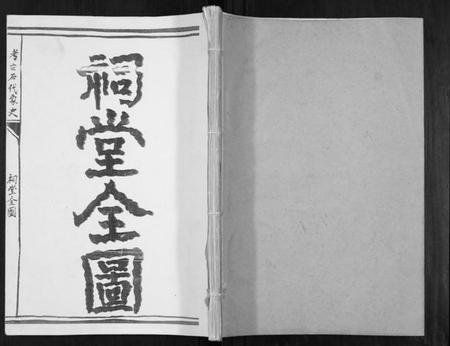 祠堂全圖
考古石代家史
祠堂全圖